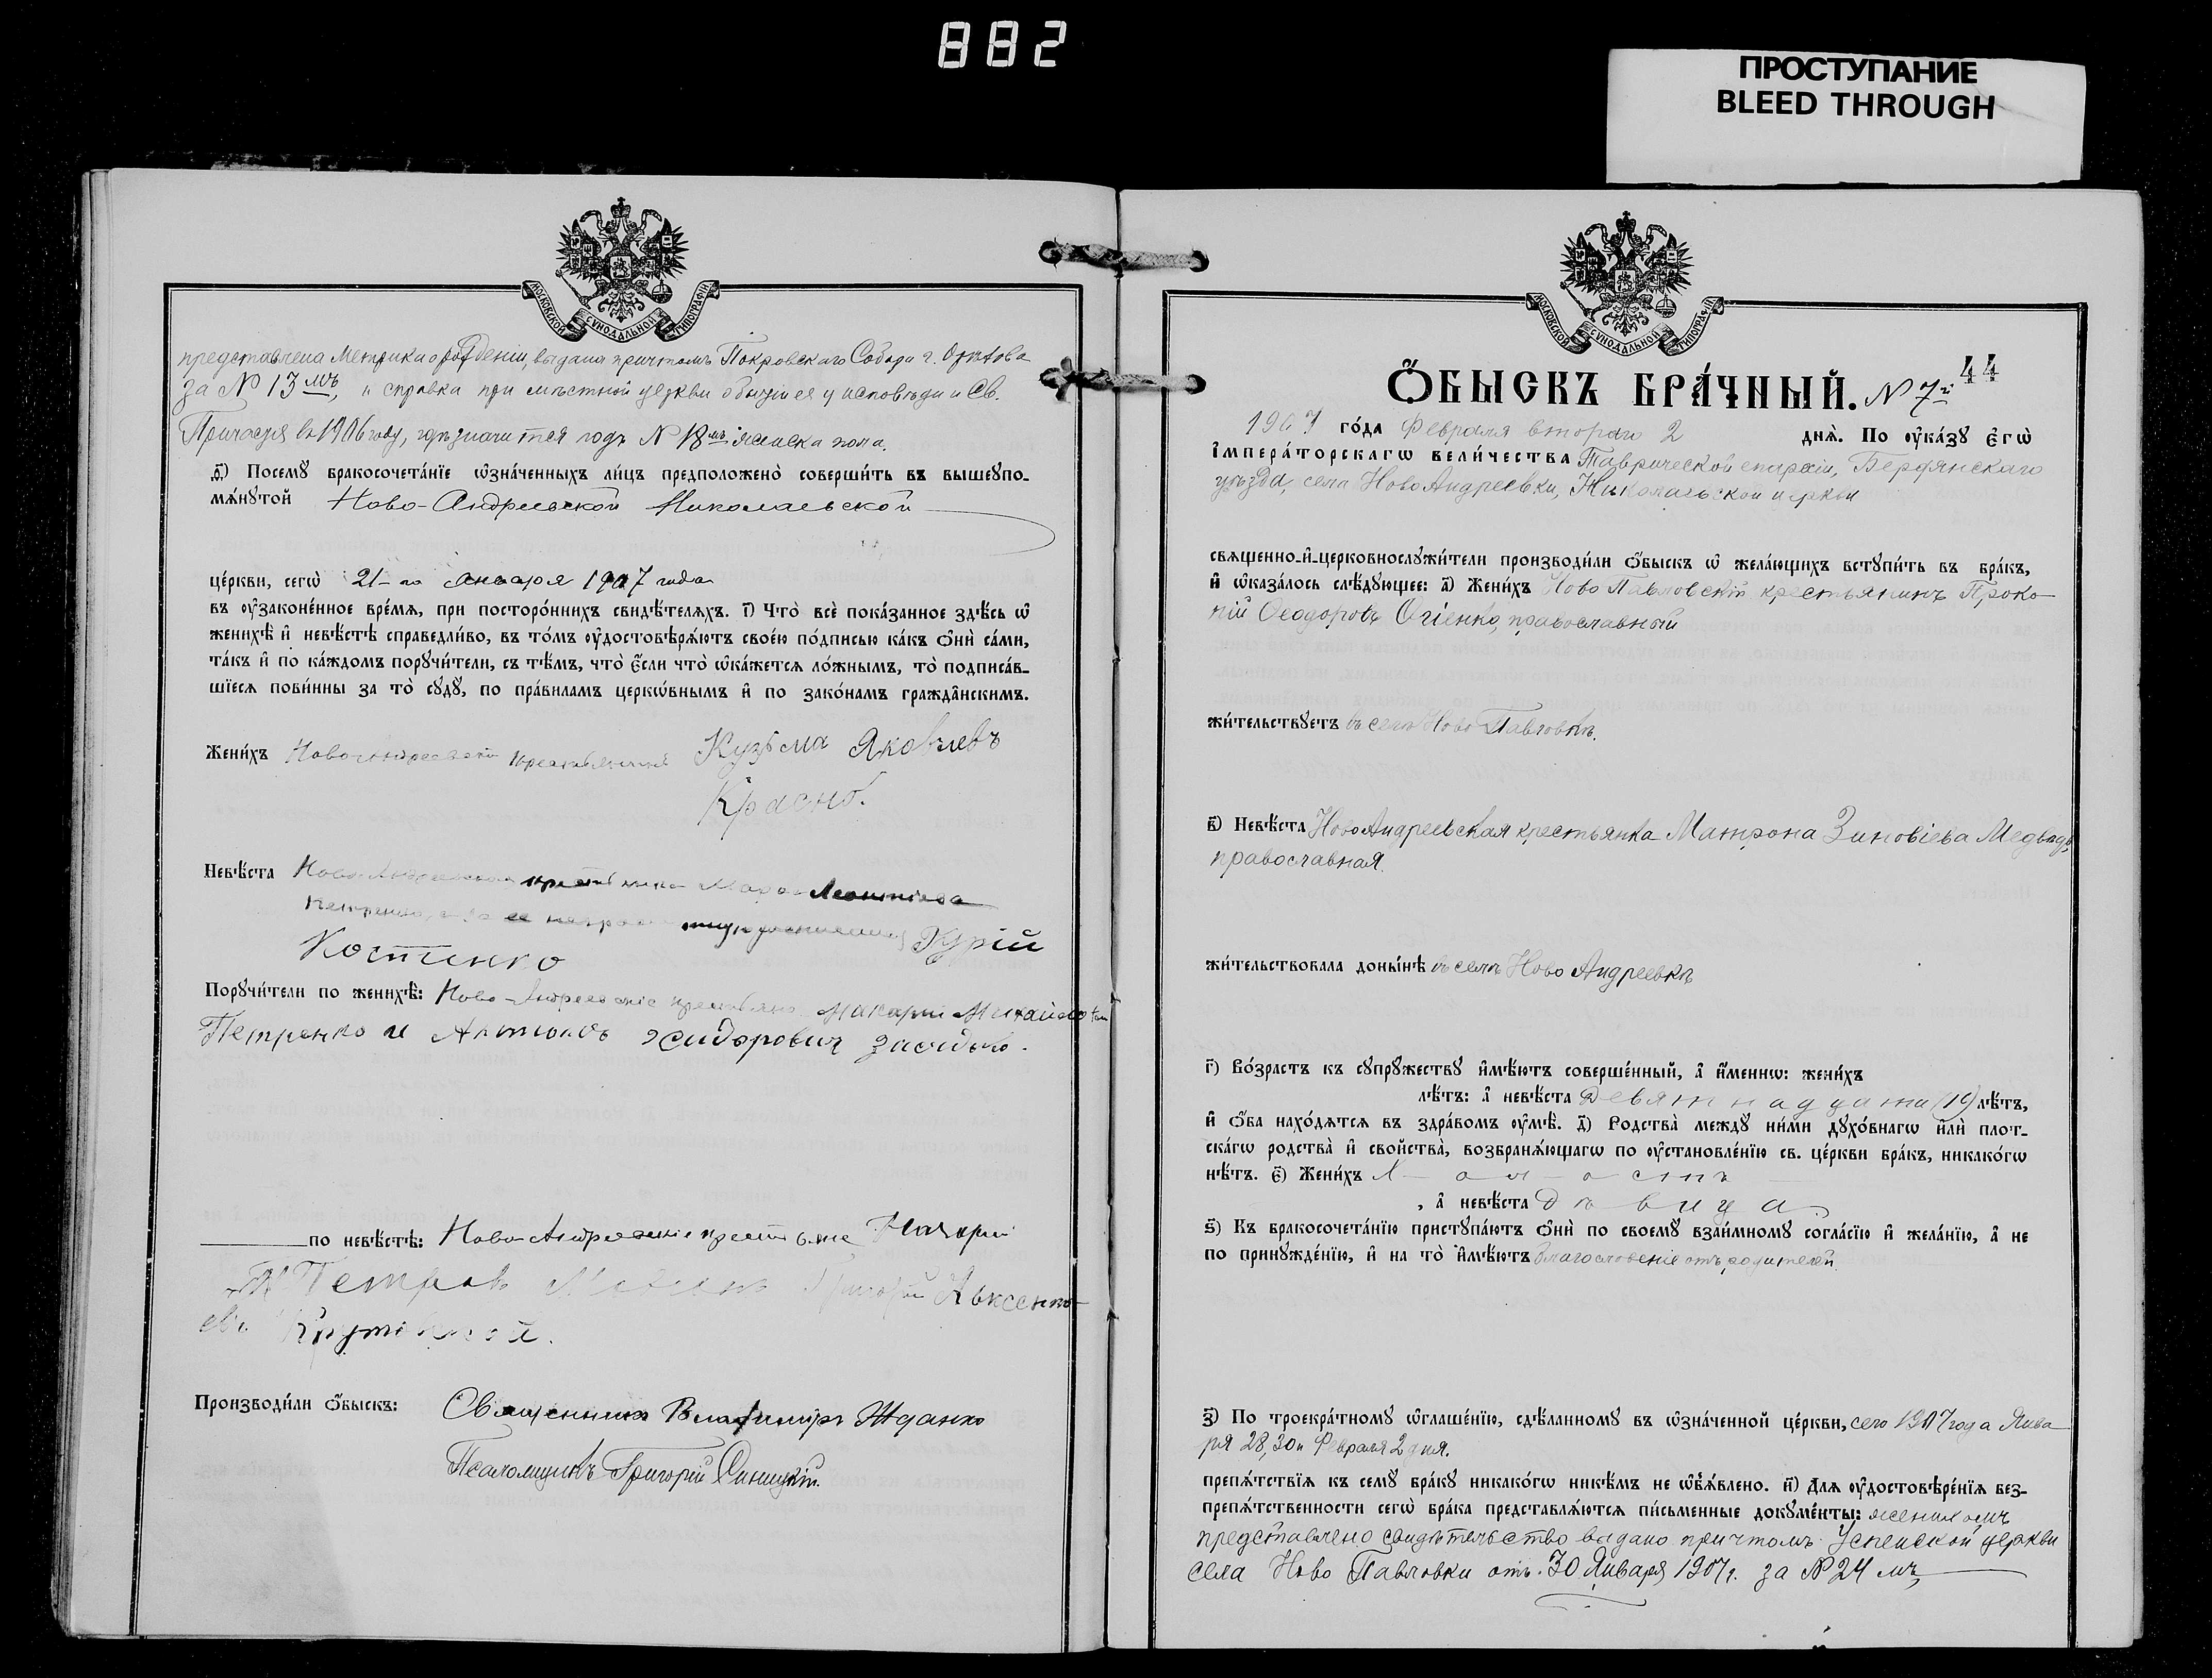 882
ПРОСТУПАНИЕ
BLEED THROUGH
МОСКОВСКОЙ СѴНОДАЛЬНОЙ ТИПОГРАФІИ
представлена Метрика о рождении, выдана причтомъ Покровскаго Собора г. Орѣхова
за № 13мъ, и справка при мѣстной церкви о бытіи ея у исповѣди и Св.
Причастія въ 1906 году, гдѣ значится подъ № 18мъ женска пола.
д҃і) Посемꙋ бракосочета́нїе ѡзна́ченныхъ ли́цъ предположено̀ соверши́ть въ вышеꙋпо-
мѧ́нꙋтой Ново-Андреевской Николаевской
це́ркви, сегѡ̀ 21-го Января 1907 года
въ ᲂу҆зако́не́нное вре́мѧ, при посторо́ннихъ свидѣ́телѧхъ. і҃) Что̀ всѐ пока́занное здѣ́сь ѡ҆
женихѣ̀ и҆ невѣ́стѣ справедли́во, въ то́мъ ᲂу҆достовѣрѧ́ютъ свое́ю по́дписью ка́къ ѻ҆нѝ са́ми,
та́къ и҆ по ка́ждомъ порꙋчи́тели, съ тѣ́мъ, что̀ є҆́сли что̀ ѡ҆ка́жетсѧ ло́жнымъ, то̀ подписа́в-
шїесѧ пови́нны за то̀ сꙋдꙋ̀, по пра́виламъ церко́внымъ и҆ по зако́намъ гражда́нскимъ.
Жени́хъ Новоандреевскій крестьянинъ Кузьма Яковлевъ
Красно
Невѣ́ста Ново-Андреевская крестьянка Леонтіева
Юрій
Костенко
Порꙋчи́тели по женихѣ̀: Ново-Андреевскіе крестьяне Макарій Михайлов
Петренко и Антонъ Исидорович
по невѣ́стѣ: Ново-Андреевскіе крестьяне
Петров Григорій Авксенть-
евъ
Производи́ли ѻ҆́быскъ: Священникъ Владиміръ Жданко
Псаломщикъ Григорій Синицкій.
МОСКОВСКОЙ СѴНОДАЛЬНОЙ ТИПОГРАФІИ
44
Ѻ҆́БЫСКЪ БРА́ЧНЫЙ. № 7й
1907 го́да Февраля втораго 2 днѧ̀. По ᲂу҆ка́зꙋ є҆гѡ̀
і҆мпера́торскагѡ вели́чества Таврической епархіи, Бердянскаго
уѣзда, села Ново Андреевки, Николаевской церкви
свѧщенно-и҆-церковнослꙋжи́тели производи́ли ѻ҆́быскъ ѡ҆ жела́ющихъ встꙋпи́ть въ бра́къ,
и҆ ѡ҆каза́лось слѣ́дꙋющее: а҃) Жени́хъ Ново Павловскій крестьянинъ Проко-
пій Ѳеодоровъ Огіенко, православный
жи́тельствꙋетъ въ селѣ Ново Павловкѣ.
в҃) Невѣ́ста Ново Андреевская крестьянка Матрона Зиновіева Медвѣдь,
православная.
жи́тельствовала доны́нѣ въ селѣ Ново Андреевкѣ
г҃) Во́зрастъ къ сꙋпрꙋ́жествꙋ и҆мѣ́ютъ соверше́нный, а҆ и҆́менно: жени́хъ
лѣ́тъ: а҆ невѣ́ста Девятнадцати (19) лѣ́тъ,
и҆ ѻ҆́ба нахо́дѧтсѧ въ здра́вомъ ᲂу҆мѣ̀. д҃) Родства̀ междꙋ̀ ни́ми дꙋхо́внагѡ и҆лѝ плот-
ска́гѡ родства̀ и҆ сво́йства, возбранѧ́ющагѡ по ᲂу҆становле́нїю св. це́ркви бра́къ, никако́гѡ
нѣ́тъ. є҃) Жени́хъ Холостъ
, а҆ невѣ́ста Дѣвица.
ѕ҃) Къ бракосочета́нїю пристꙋпа́ютъ ѻ҆нѝ по своемꙋ̀ взаи́мномꙋ согла́сїю и҆ жела́нїю, а҆ не
по принꙋжде́нїю, и҆ на то̀ и҆мѣ́ютъ благословеніе отъ родителей.
з҃) По троекра́тномꙋ ѡ҆глаше́нїю, сдѣ́ланномꙋ въ ѡ҆зна́ченной це́ркви, сего 1907 года Янва
ря 28, 30 и Февраля 2 дня.
препѧ́тствїѧ къ семꙋ̀ бра́кꙋ никако́гѡ никѣ́мъ не ѡ҆бъѧ́влено. и҃) Длѧ ᲂу҆достовѣре́нїѧ без-
препѧ́тственности сегѡ̀ бра́ка представлѧ́ютсѧ пи́сьменные докꙋме́нты: женихомъ
представлено свидѣтельство выдано причтомъ Успенской церкви
села Ново Павловки отъ 30 Января 1907 г. за № 24 мъ,